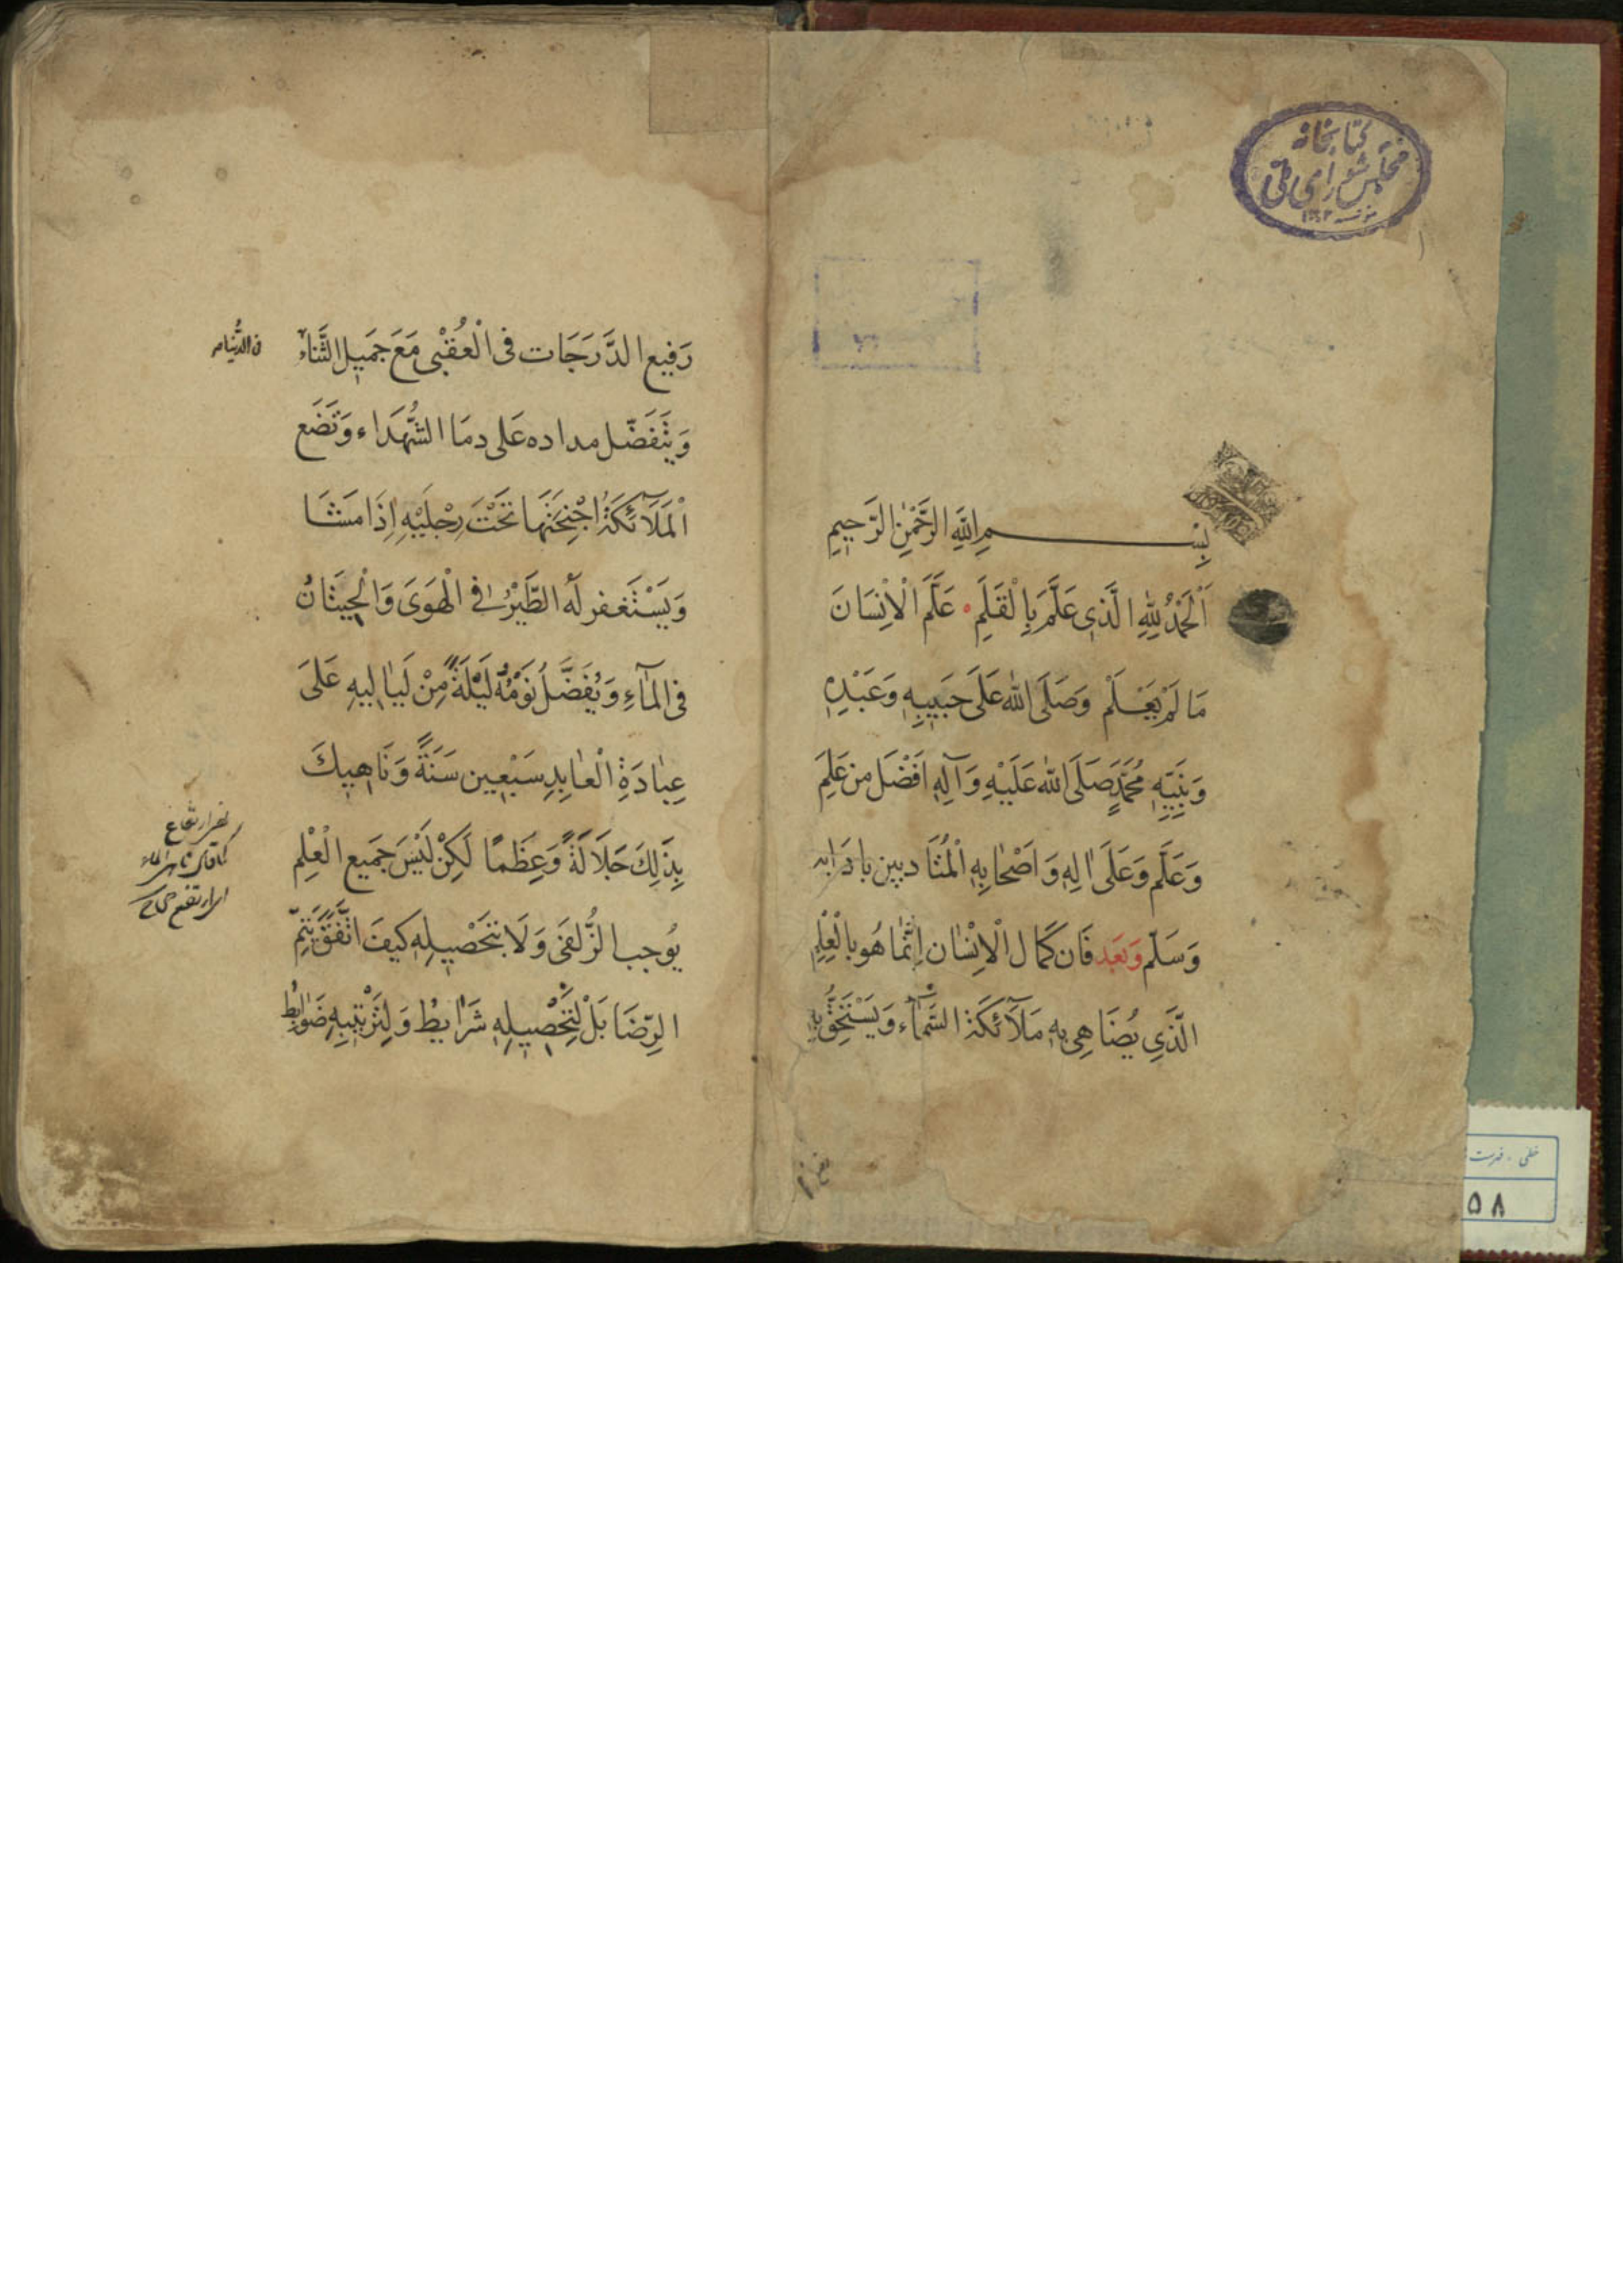 كتابخانه
مجلس شورای ملی
بِسْمِ اللَّهِ الرَّحْمٰنِ الرَّحِيمِ
اَلْحَمْدُ لِلّٰهِ الَّذِى عَلَّمَ بِالْقَلَمِ عَلَّمَ الْاِنْسَانَ
مَا لَمْ يَعْلَمْ وَصَلَى اللّٰه عَلَى حَبِيبِهِ وَعَبْدِهِ
وَنَبِيِّهِ مُحَمَّدٍ صَلَى اللّٰه عَلَيْهِ وَآلِهِ اَفْضَل من عَلِمَ
وَعَلَّمَ وَعَلَى اٰلِهِ وَاَصْحٰابِهِ الْمُتَادبين بادَابه
وَسَلّم وَبَعد فَان كَمَال الْاِنْسٰان اِنَّمٰا هُو بالْعِلْمِ
الَّذِي يُضَاهِى بِهِ مَلَآئكَة السَّمٰآء وَيَسْتَحِقُّ بِهِ
رَفِيع الدَّرَجَات فى الْعُقْبٰى مَعَ جَمِيل الثَّنَاء
فى الدُّنْيَا
وَيَتَفَضّل مداده عَلى دمَا الشُّهَدَاء وَتَضَع
الْمَلَآئكَةُ اَجْنِحَتَهَا تَحْتَ رِجْلَيْهِ اِذَا مَشَا
وَيَسْتَغفر لَهُ الطَّيْرُ فى الْهَوَى وَالْحِيتَانُ
فى الْمٰآءِ وَيُفَضَّلُ نَوْمُهُ لَيْلَةً مِنْ لَيٰاليهِ عَلىَ
عِبٰادَةِ الْعٰابِدِ سَبْعِين سَنَةً وَنَاهِيكَ
بِذٰلِكَ جَلَالَةً وَعِظَمًا لَكِنْ لَيْسَ جَمِيع الْعِلْمِ
يُوجب الزُّلفَى وَلَا بتَحْصِيلِهِ كيفَ اتَّفَقَ يَتِمّ
الرِّضَا بَلْ لِتَحْصِيلِهِ شَرٰايطُ وَلِتَرْتيبِهِ ضَوٰابِطُ
خطی - فهرست
٥٨